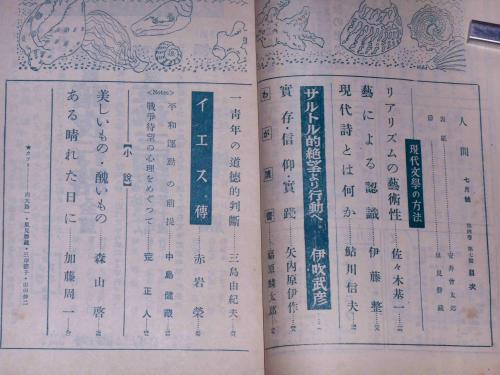 人間 七月號 目次
表紙 安井曾太郎
現代文學の方法
リアリズムの藝術性 佐々木基一
藝による認識 伊藤整
現代詩とは何か 鮎川信夫
サルトル的絶望より行動へ 伊吹武彦
實存・信仰・實踐 矢内原伊作
わが讀書 福原麟太郎
一靑年の道德的判斷 三島由紀夫
イエス傳 赤岩榮
<Notes>
平和運動の前提 中島健藏
戰爭待望の心理をめぐつて 荒正人
【小說】
美しいもの・醜いもの 森山啓
ある晴れた日に 加藤周一